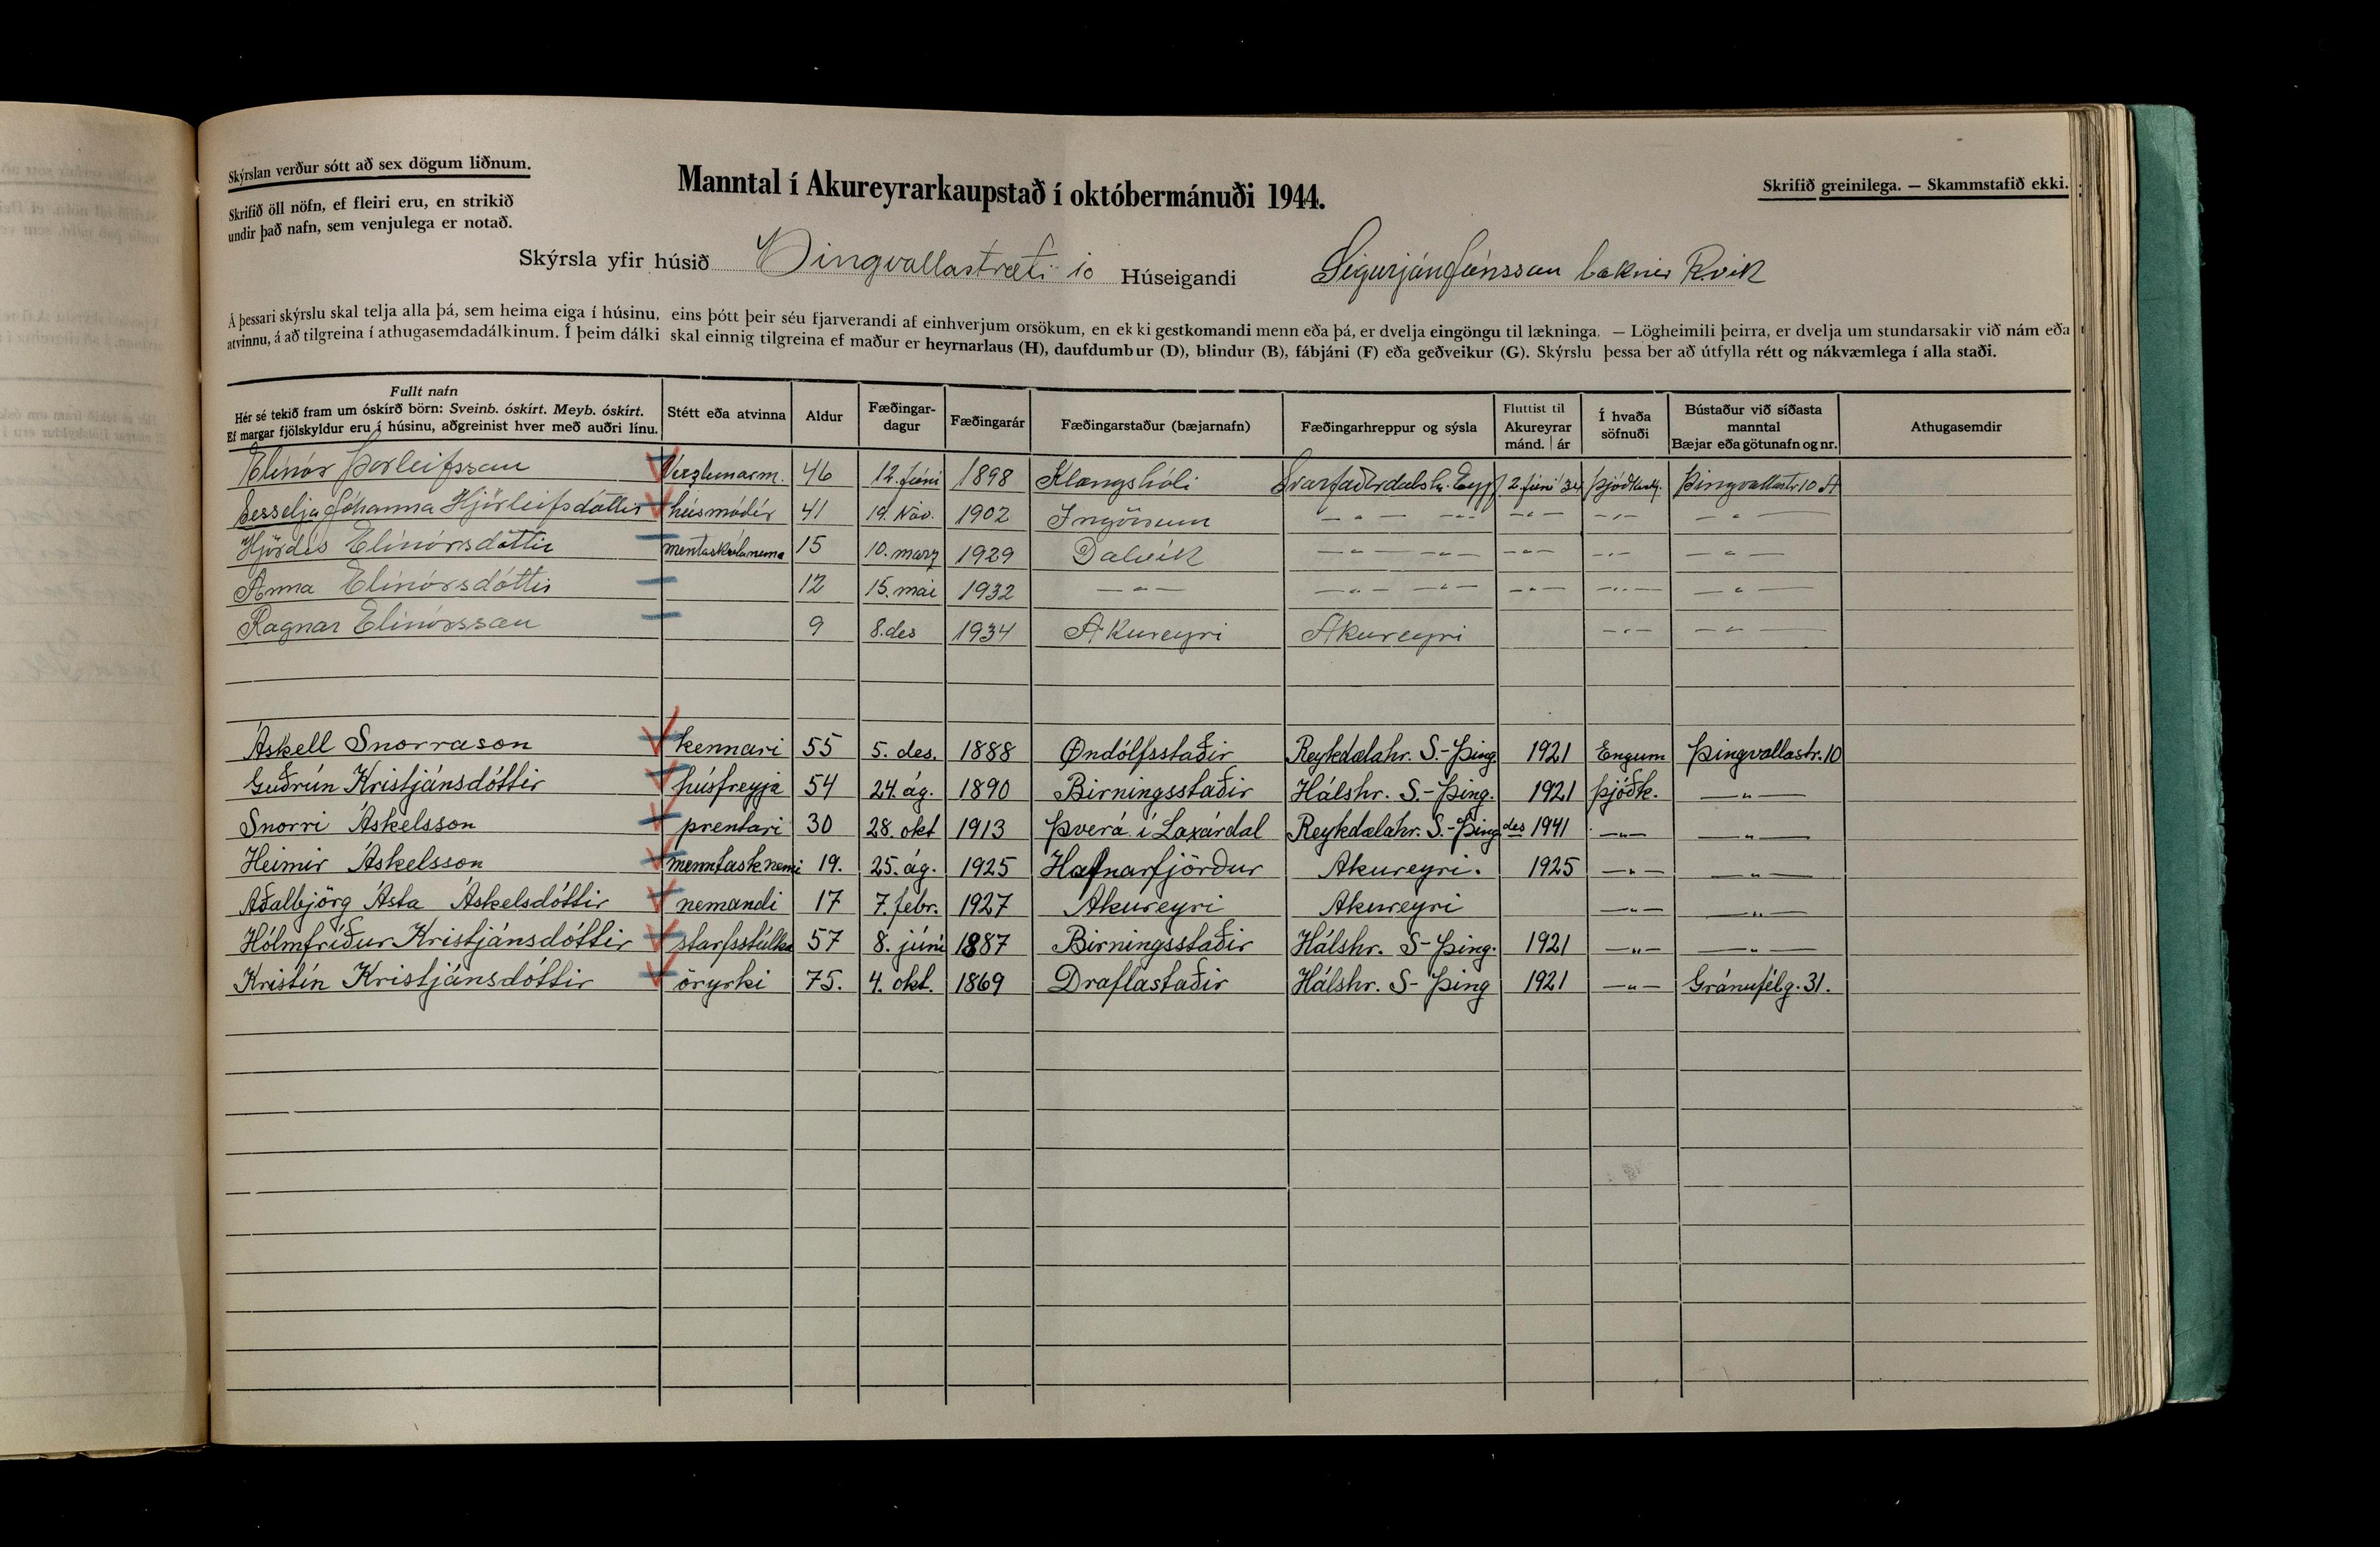 Skýrslan verður sótt að sex dögum liðnum.
Skrifið öll nöfn, ef fleiri eru, en strikið
undir það nafn, sem venjulega er notað.
Manntal í Akureyrarkaupstað í októbermánuði 1944.
Skrifið greinilega. — Skammstafið ekki.
Skýrsla yfir húsið Þingvallastræti 10 Húseigandi Sigurjón Jónsson læknir Rvík
Á þessari skýrslu skal telja alla þá, sem heima eiga í húsinu, eins þótt þeir séu fjarverandi af einhverjum orsökum, en ekki gestkomandi menn eða þá, er dvelja eingöngu til lækninga. — Lögheimili þeirra, er dvelja um stundarsakir við nám eða
atvinnu, á að tilgreina í athugasemdadálkinum. Í þeim dálki skal einnig tilgreina ef maður er heyrnarlaus (H), daufdumbur (D), blindur (B), fábjáni (F) eða geðveikur (G). Skýrslu þessa ber að útfylla rétt og nákvæmlega í alla staði.
Fullt nafn
Hér sé tekið fram um óskírð börn: Sveinb. óskírt. Meyb. óskírt.
Ef margar fjölskyldur eru í húsinu, aðgreinist hver með auðri línu.
Stétt eða atvinna
Aldur
Fæðingar-
dagur
Fæðingarár
Fæðingarstaður (bæjarnafn)
Fæðingarhreppur og sýsla
Fluttist til
Akureyrar
mánd. | ár
Í hvaða
söfnuði
Bústaður við síðasta
manntal
Bæjar eða götunafn og nr.
Athugasemdir
Elínór Þorleifsson Verzlunarm. 46 12. júní 1898 Klængshóli Svarfaðardalshr. Eyjf. 2. júní 34 Þjóðkirkj. Þingvallastr. 10 A
Sesselja Jóhanna Hjörleifsdóttir húsmóðir 41 19. Nóv. 1902 Ingörum —"— —"— —"— —"— —"—
Hjördís Elínórsdóttir mentaskólanema 15 10. marz 1929 Dalvík —"— —"— —"— —"— —"—
Anna Elínórsdóttir 12 15. mai 1932 —"— —"— —"— —"— —"— —"—
Ragnar Elínórsson 9 8. des 1934 Akureyri Akureyri —"— —"—
Áskell Snorrason kennari 55 5. des. 1888 Öndólfsstaðir Reykdælahr. S.-Þing. 1921 Engum Þingvallastr. 10
Guðrún Kristjánsdóttir húsfreyja 54 24. ág. 1890 Birningsstaðir Hálshr. S.-Þing. 1921 Þjóðk. —"—
Snorri Áskelsson prentari 30 28. okt 1913 Þverá í Laxárdal Reykdælahr. S.-Þing. des 1941 —"— —"—
Heimir Áskelsson menntask.nemi 19. 25. ág. 1925 Hafnarfjörður Akureyri. 1925 —"— —"—
Aðalbjörg Ásta Áskelsdóttir nemandi 17 7. febr. 1927 Akureyri Akureyri —"— —"—
Hólmfríður Kristjánsdóttir starfsstúlka 57 8. júní 1887 Birningsstaðir Hálshr. S-Þing. 1921 —"— —"—
Kristín Kristjánsdóttir öryrki 75. 4. okt. 1869 Draflastaðir Hálshr. S-Þing 1921 —"— Gránufélg. 31.